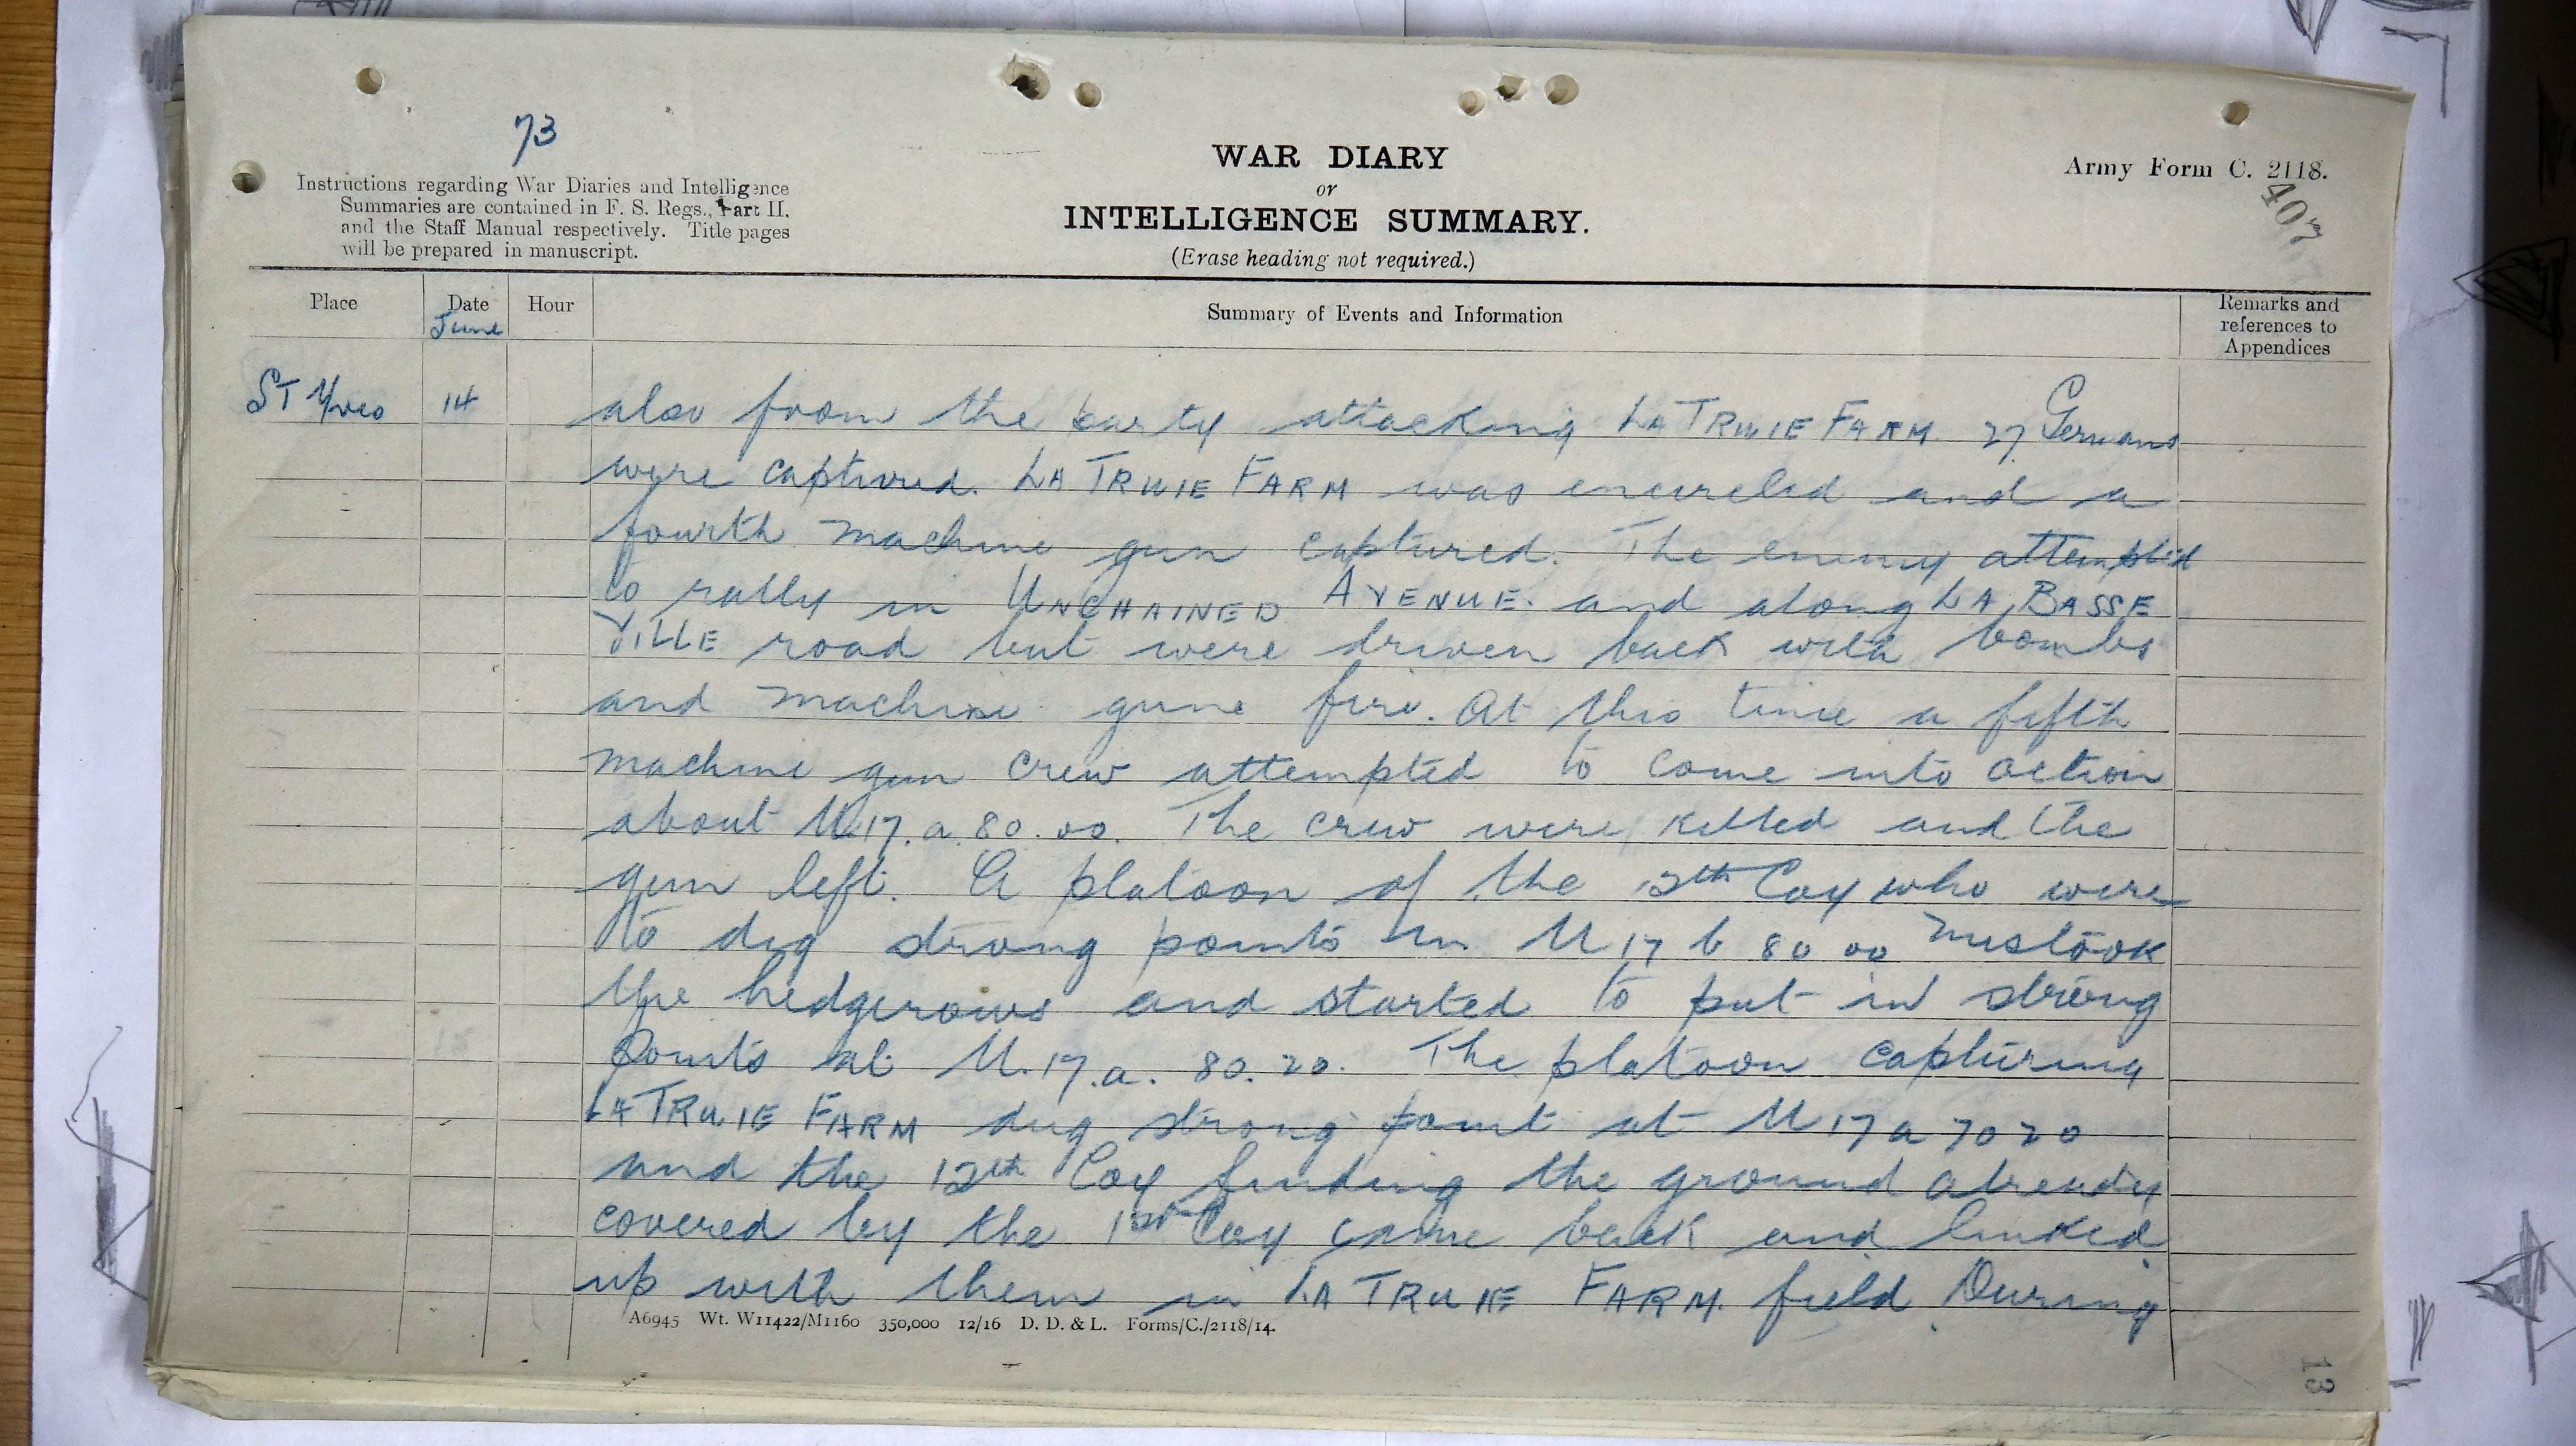 73
Instructions regarding War Diaries and Intelligence
Summaries are contained in F. S. Regs., Part II.
and the Staff Manual respectively. Title pages
will be prepared in manuscript.
WAR DIARY
or
INTELLIGENCE SUMMARY.
(Erase heading not required.)
Army Form C. 2118.
407
Place
Date
June
Hour
Summary of Events and Information
Remarks and
references to
Appendices
ST Yves 14 also from the party attacking LA TRUIE FARM 27 Germans
were captured. LA TRUIE FARM was encircled and a
fourth machine gun captured. The enemy attempted
to rally in UNCHAINED AVENUE. and along LA BASSE
VILLE road but were driven back with bombs
and machine gune fire. At this time a fifth
machine gun crew attempted to come into action
about U.17.a.80.00. The crew were killed and the
gun left. A platoon of the 12th Coy who were
to dig strong points in U 17 b 80 00 mistook
the hedgerows and started to put in strong
points at U.17.a.80.20. The platoon capturing
LA TRUIE FARM dug strong point at U 17 a 70 20
and the 12th Coy finding the ground already
covered by the 1st Coy came back and linked
up with them in LA TRUIE FARM field During
A6945 Wt. W11422/M1160 350,000 12/16 D. D. & L. Forms/C./2118/14.
13